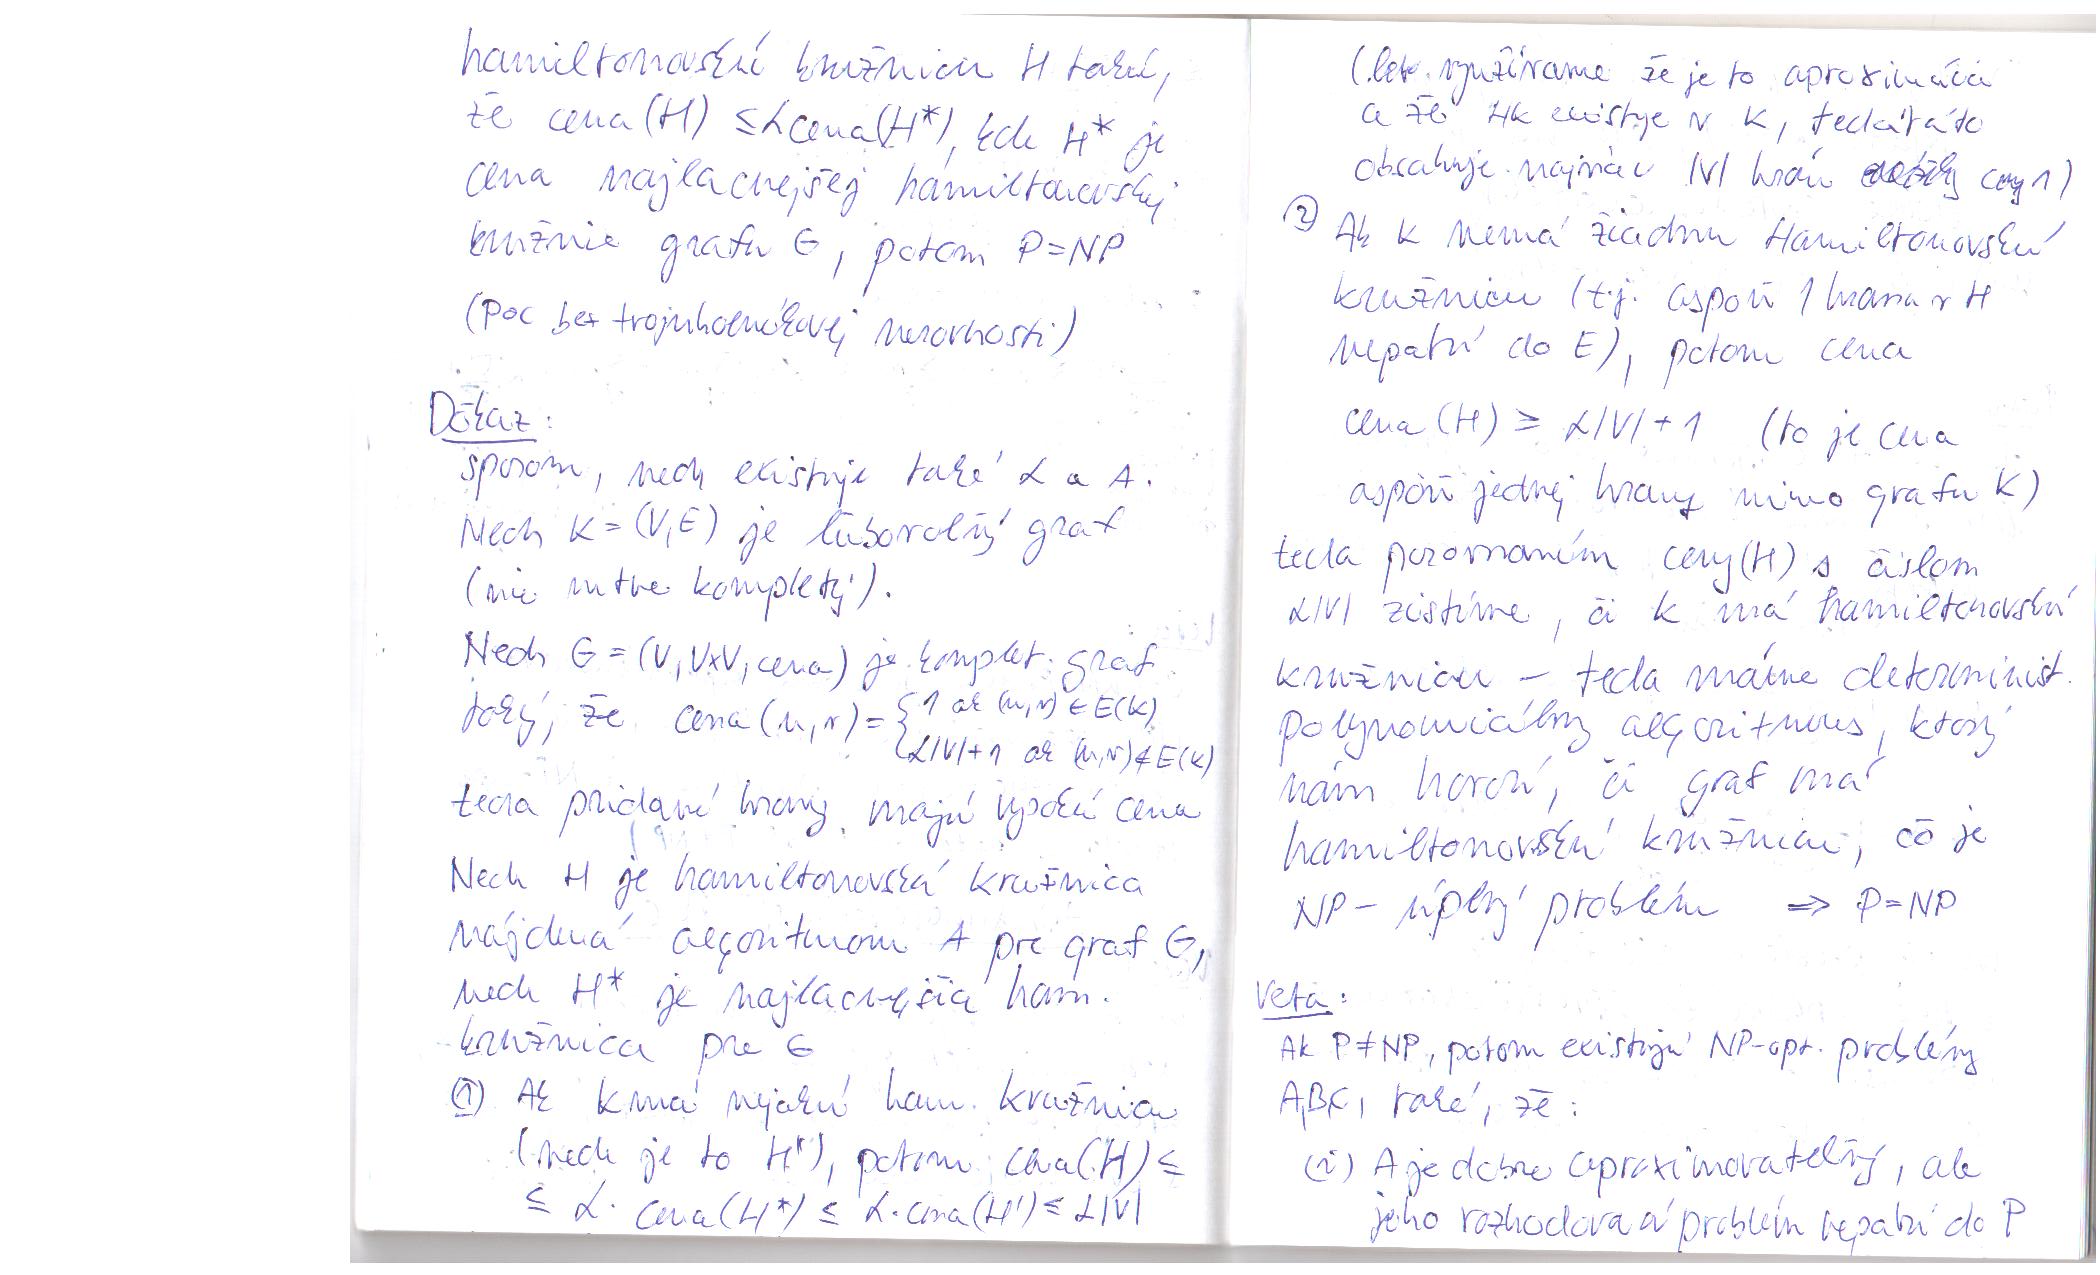 hamiltonovskú kružnicu H takú,
že cena(H) ≤ αcena(H*), kde H* je
cena najlacnejšej hamiltonovskej
kružnie grafu G, potom P=NP
(POC bez trojuholníkovej nerovnosti)
Dôkaz:
sporom, nech existuje také α a A.
Nech K=(V,E) je ľubovoľný graf
(nie nutne kompletný).
Nech G=(V,V×V,cena) je komplet. graf
taký, že cena(u,v)= { 1 ak (u,v)∈E(K)
α|V|+1 ak (u,v)∉E(K)
teda pridané hrany majú vysokú cena
Nech H je hamiltonovská kružnica
nájdená algoritmom A pre graf G,
nech H* je najlacnejšia ham.
kružnica pre G
① Ak K má nejakú ham. kružnicu
(nech je to H'), potom cena(H) ≤
≤ α. cena(H*) ≤ α.cena(H') ≤ α|V|
(lebo využívame že je to aproximácia
a že HK existuje v K, teda táto
obsahuje najviac |V| hrán ceny 1)
② Ak K nemá žiadnu Hamiltonovskú
kružnicu (t.j. aspoň 1 hrana v H
nepatrí do E), potom cena
cena(H) ≥ α|V|+1 (to je cena
aspoň jednej hrany mimo grafu K)
teda porovnaním ceny(H) s číslom
α|V| zistíme, či K má hamiltonovskú
kružnicu – teda máme determinist.
polynomiálny algoritmus, ktorý
nám hovorí, či graf má
hamiltonovskú kružnicu, čo je
NP – úplný problém ⇒ P=NP
Veta:
Ak P≠NP, potom existujú NP-opt. problémy
A,B,C, také, že:
(i) A je dobre aproximovateľný, ale
jeho rozhodovací problém nepatrí do P